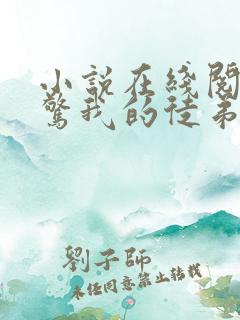 小說在线閱
驚我的徒弟
劉子師
未經同意禁止转载